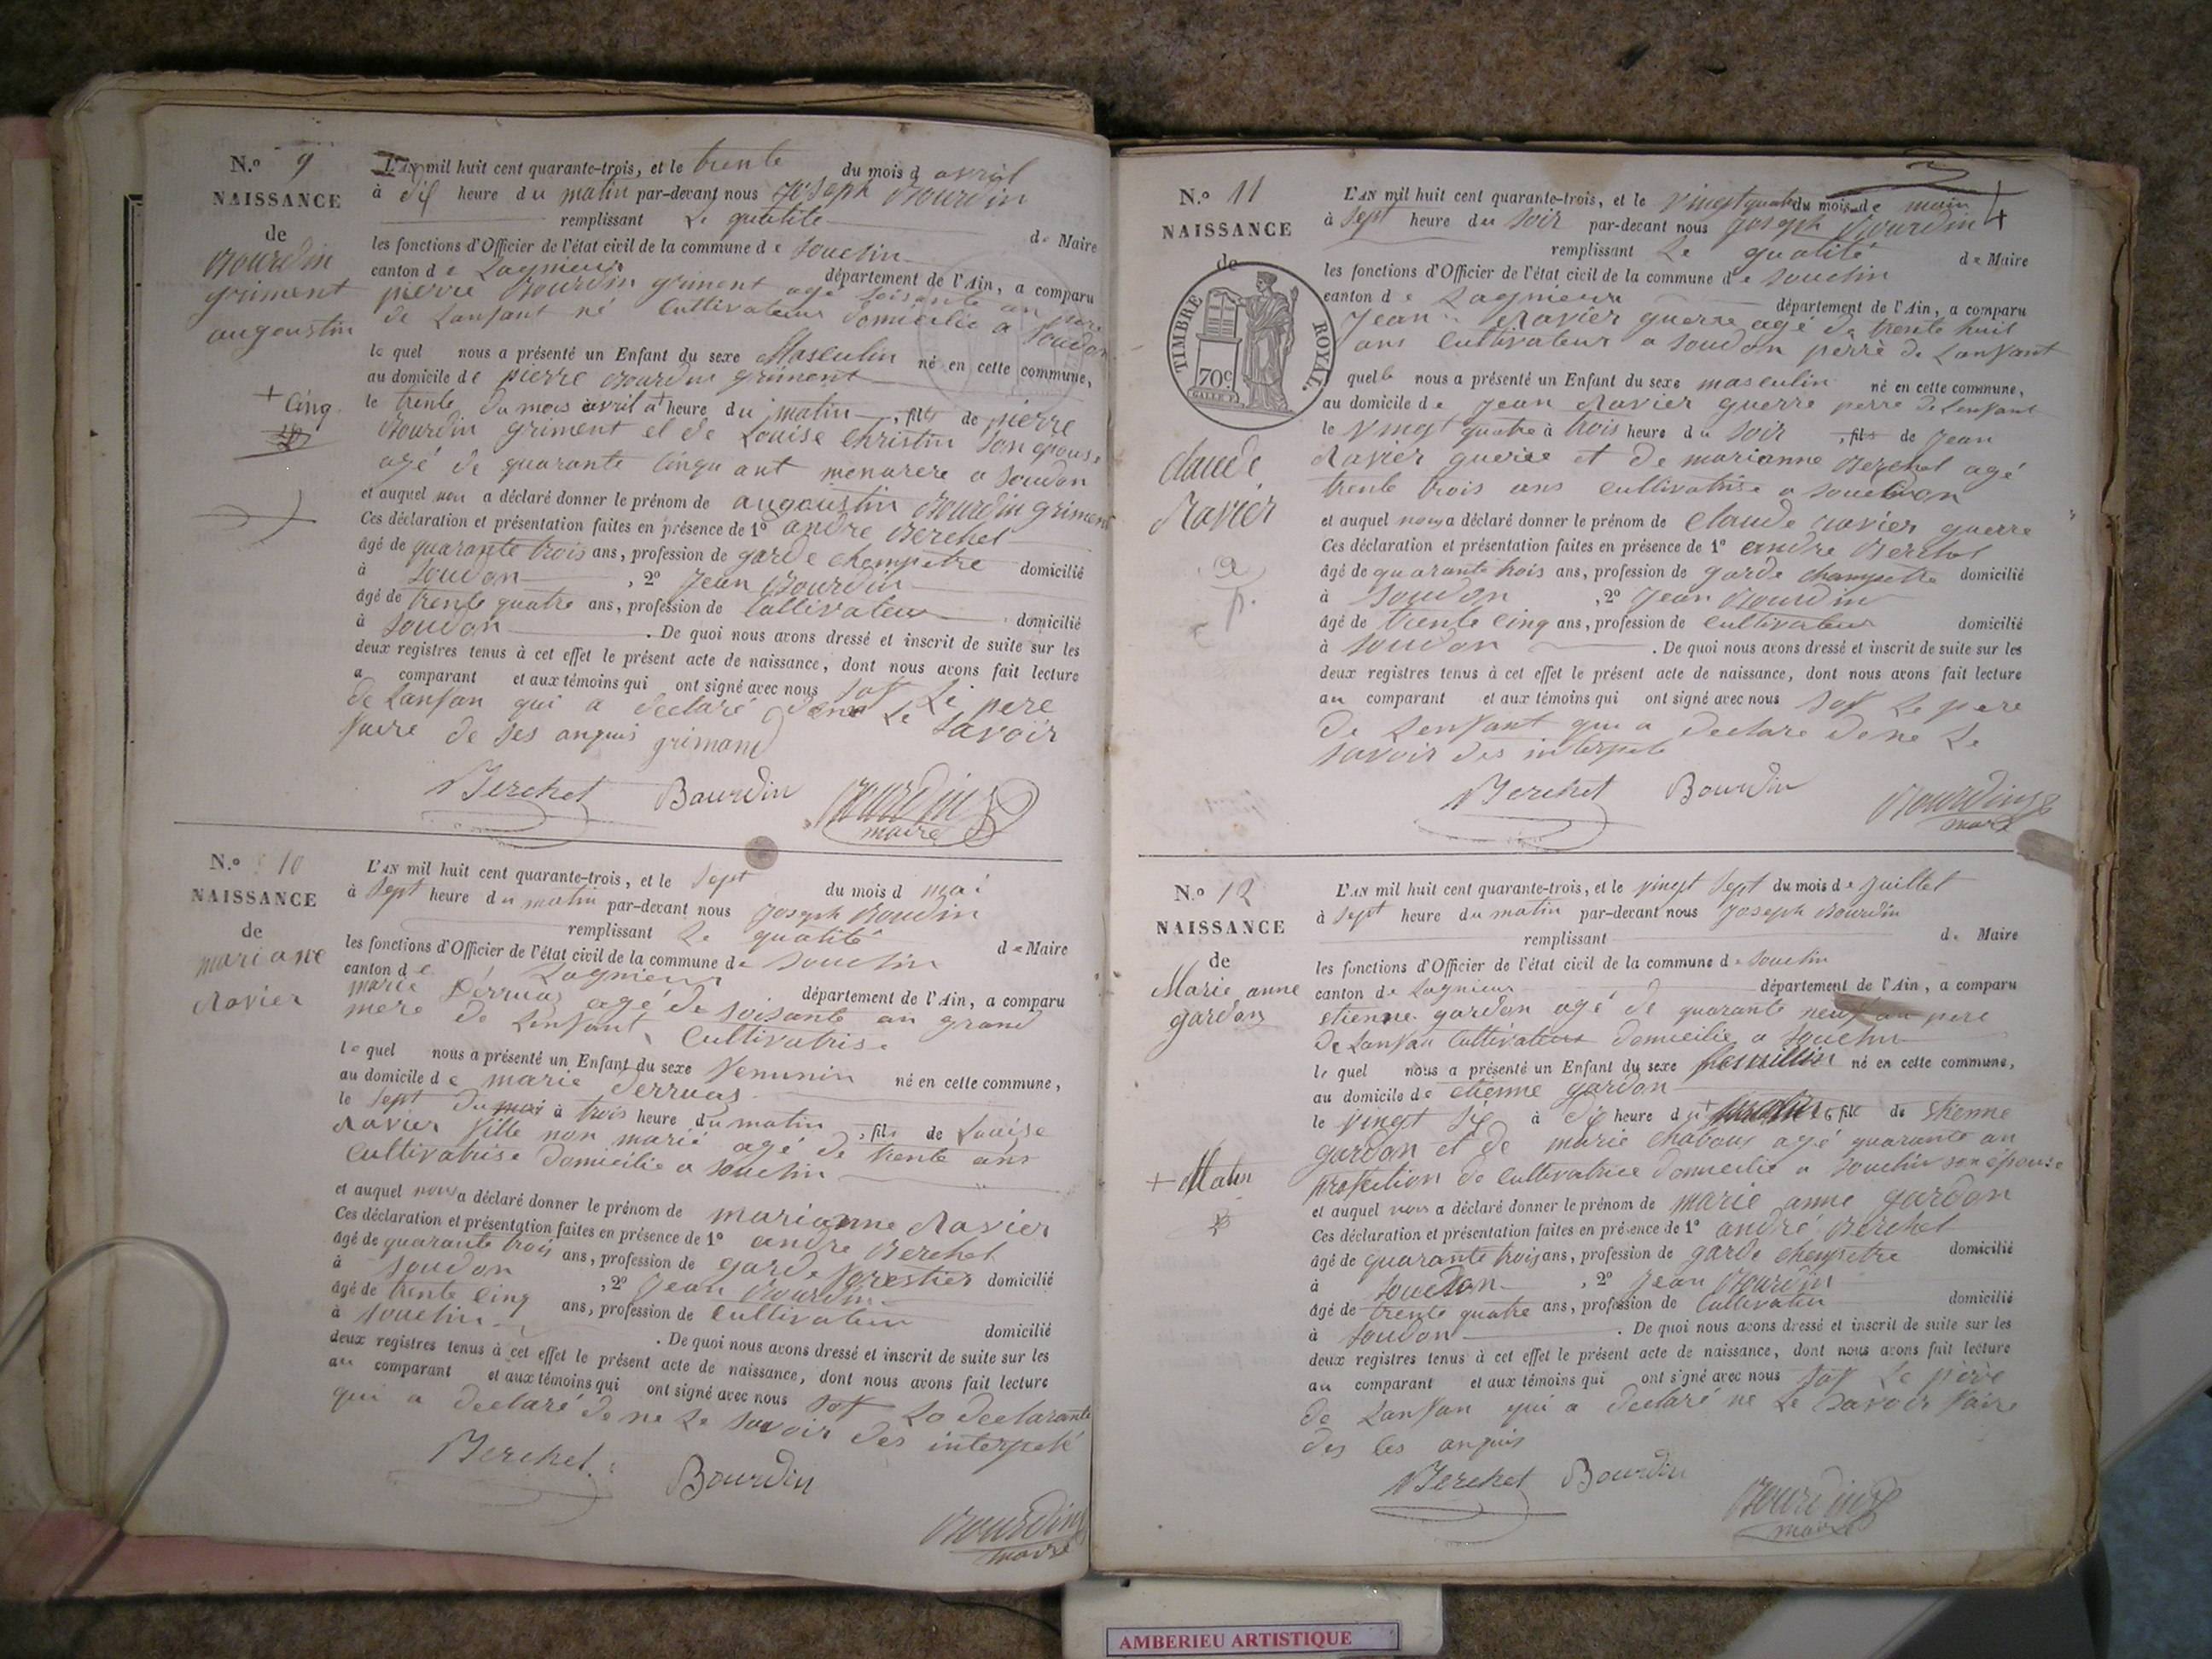 N.º 9
NAISSANCE
de
Bourdin
griment
augoustin
+ Cinq
L'AN mil huit cent quarante-trois, et le trente du mois d avril
à dix heure du matin par-devant nous Joseph Bourdin
remplissant Le qualité de Maire
les fonctions d'Officier de l'état civil de la commune de Souclin
canton de Lagnieux département de l'Ain, a comparu
pierre Bourdin griment agé soisante an pere
de Lanfant né Cultivateur domicilié a Soudon
le quel nous a présenté un Enfant du sexe Masculin né en cette commune,
au domicile de pierre Bourdin griment
le trente du mois avril à + heure du matin, fils de pierre
Bourdin griment et de Louise Christin son épouse
agé de quarante Cinqu ant menarere a Soudon
et auquel nou a déclaré donner le prénom de augoustin Bourdin griment
Ces déclaration et présentation faites en présence de 1º andre Berchet
âgé de quarante trois ans, profession de garde chempetre domicilié
à Soudon, 2º Jean Bourdin
âgé de trente quatre ans, profession de Cultivateur domicilié
à Soudon. De quoi nous avons dressé et inscrit de suite sur les
deux registres tenus à cet effet le présent acte de naissance, dont nous avons fait lecture
a comparant et aux témoins qui ont signé avec nous sof Le pere
de Lanfan qui a declaré dene Le Savoir
faire de ses anquis grimand
Berchet Bourdin Bourdin
maire
N.º 10
NAISSANCE
de
mariane
Ravier
L'AN mil huit cent quarante-trois, et le Sept du mois d mai
à Sept heure du matin par-devant nous Joseph Bourdin
remplissant Le qualité de Maire
les fonctions d'Officier de l'état civil de la commune de Souclin
canton de Lagnieux département de l'Ain, a comparu
marie Derruas agé de soisante an grand
mere de Lenfant Cultivatrise
le quel nous a présenté un Enfant du sexe femunin né en cette commune,
au domicile de marie Derruas
le Sept du mai à trois heure du matin, fils de Louise
Ravier fille non marié agé de trente ans
Cultivatrise domicilié a Souclin
et auquel nous a déclaré donner le prénom de marianne Ravier
Ces déclaration et présentation faites en présence de 1º andre Berchet
âgé de quarante trois ans, profession de garde forestier domicilié
à Soudon, 2º Jean Bourdin
âgé de trente cinq ans, profession de Cultivateur domicilié
à Souclin. De quoi nous avons dressé et inscrit de suite sur les
deux registres tenus à cet effet le présent acte de naissance, dont nous avons fait lecture
au comparant et aux témoins qui ont signé avec nous sof La declarante
qui a declaré de ne Le savoir des interpelé
Berchet Bourdin
Bourdin
maire
N.º 11
NAISSANCE
de
TIMBRE ROYAL.
70 c
Claude
Ravier
4
L'AN mil huit cent quarante-trois, et le vingt quatre du mois de main
à Sept heure du soir par-devant nous Joseph Bourdin
remplissant Le qualité de Maire
les fonctions d'Officier de l'état civil de la commune de Souclin
canton de Lagnieux département de l'Ain, a comparu
Jean Ravier guerre agé de trente huit
ans Cultivateur a Soudon pèrrè de Lanfant
quelle nous a présenté un Enfant du sexe masculin né en cette commune,
au domicile de Jean Ravier guerre perre de Lenfant
le vingt quatre à trois heure du soir, fils de Jean
Ravier guerre et de marianne Berchet agé
trente trois ans cultivatrise a
et auquel nous a déclaré donner le prénom de Claude ravier guerre
Ces déclaration et présentation faites en présence de 1º andre Berchet
âgé de quarante trois ans, profession de garde champetre domicilié
à Soudon, 2º Jean Bourdin
âgé de trente cinq ans, profession de cultivateur domicilié
à Soudon. De quoi nous avons dressé et inscrit de suite sur les
deux registres tenus à cet effet le présent acte de naissance, dont nous avons fait lecture
au comparant et aux témoins qui ont signé avec nous sof Le pere
de Lenfant qui a declare dene Le
savoir des interpele
Berchet Bourdin Bourdin
maire
N.º 12
NAISSANCE
de
Marie anne
gardon
+ Matin
L'AN mil huit cent quarante-trois, et le vingt sept du mois de Juillet
à Sept heure du matin par-devant nous Joseph Bourdin
remplissant de Maire
les fonctions d'Officier de l'état civil de la commune de Souclin
canton de Lagnieux département de l'Ain, a comparu
etienne gardon agé de quarante neuf an pere
De Lanfan Cultivateur domicilié a Souclin
le quel nous a présenté un Enfant du sexe né en cette commune,
au domicile de etienne gardon
le vingt Six à dix heure du +, fils de etienne
gardon et de marie Chaboux agé quarante an
profection de cultivatrice domicilié a Souclin son épouse
et auquel nous a déclaré donner le prénom de marie anne gardon
Ces déclaration et présentation faites en présence de 1º andré Berchet
âgé de quarante trois ans, profession de garde chempetre domicilié
à Soudon, 2º Jean Bourdin
âgé de trente quatre ans, profession de Cultivateu domicilié
à Soudon. De quoi nous avons dressé et inscrit de suite sur les
deux registres tenus à cet effet le présent acte de naissance, dont nous avons fait lecture
au comparant et aux témoins qui ont signé avec nous sof Le pèrre
de Lanfan qui a declaré ne Le Savoir faire
des les anquis
Berchet Bourdin
Bourdin
maire
AMBERIEU ARTISTIQUE